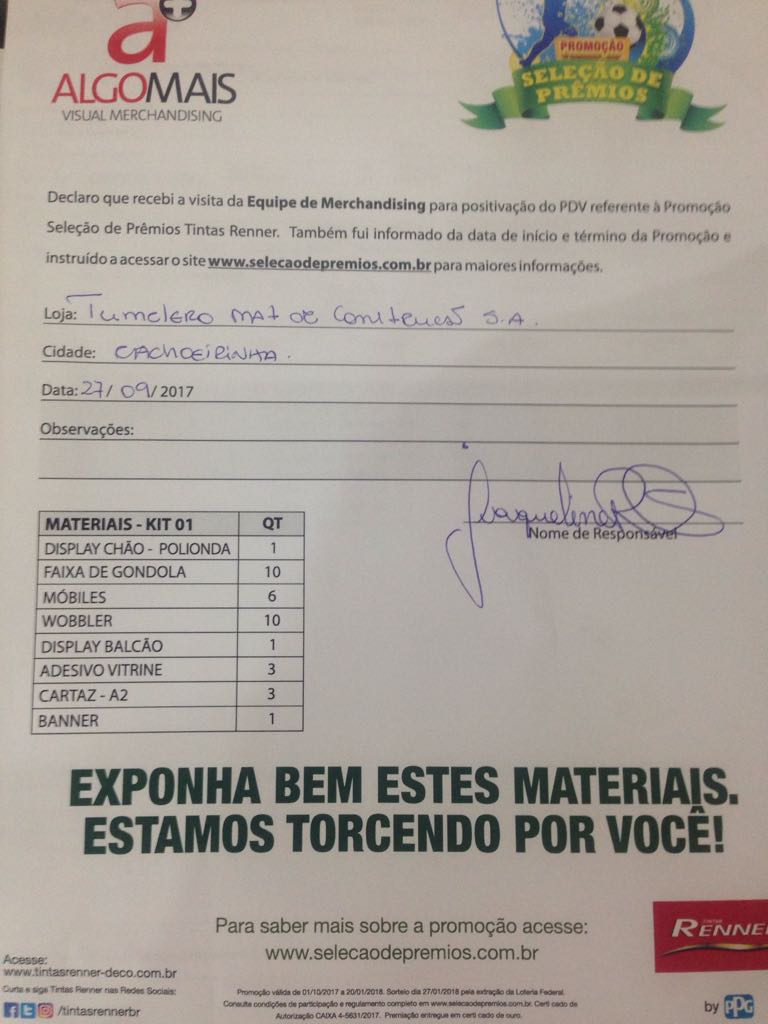 a+
ALGOMAIS
VISUAL MERCHANDISING
PROMOÇÃO
SELEÇÃO DE
PRÊMIOS
Declaro que recebi a visita da Equipe de Merchandising para positivação do PDV referente à Promoção
Seleção de Prêmios Tintas Renner. Também fui informado da data de início e término da Promoção e
instruído a acessar o site www.selecaodepremios.com.br para maiores informações.
Loja: Tumelero mat de Construcas S.A.
Cidade: CACHOEIRINHA.
Data: 27/ 09/ 2017
Observações:
Jaqueline
Nome de Responsável
MATERIAIS - KIT 01 QT
DISPLAY CHÃO - POLIONDA 1
FAIXA DE GONDOLA 10
MÓBILES 6
WOBBLER 10
DISPLAY BALCÃO 1
ADESIVO VITRINE 3
CARTAZ - A2 3
BANNER 1
EXPONHA BEM ESTES MATERIAIS.
ESTAMOS TORCENDO POR VOCÊ!
Para saber mais sobre a promoção acesse:
www.selecaodepremios.com.br
TINTAS
RENNER
Acesse:
www.tintasrenner-deco.com.br
Curta e siga Tintas Renner nas Redes Sociais:
/tintasrennerbr
Promoção válida de 01/10/2017 a 20/01/2018. Sorteio dia 27/01/2018 pela extração da Loteria Federal.
Consulte condições de participação e regulamento completo em www.selecaodepremios.com.br. Certi cado de
Autorização CAIXA 4-5631/2017. Premiação entregue em certi cado de ouro.
by PPG